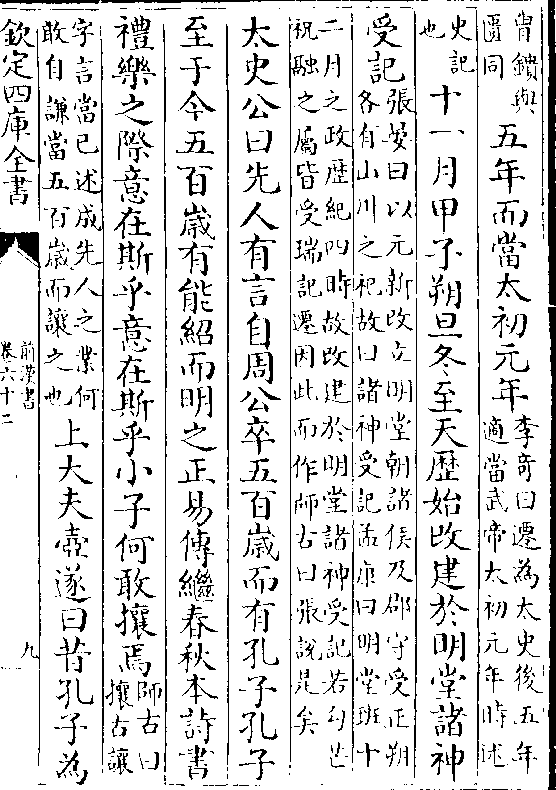 胄鐀與
匱同
五年而當太初元年
李奇曰遷為太史後五年
適當武帝太初元年時述
史記
也
十一月甲子朔旦冬至天歴始改建於明堂諸神
受記
張晏曰以元新改立明堂朝諸侯及郡守受正朔
各有山川之祀故曰諸神受記孟康曰明堂班十
二月之政歴紀四時故改建於明堂諸神受記若勾芒
祝融之屬皆受瑞記遷因此而作師古曰張說是矣
太史公曰先人有言自周公卒五百嵗而有孔子孔子
至于今五百嵗有能紹而明之正易傳繼春秋本詩書
禮樂之際意在斯乎意在斯乎小子何敢攘焉
師古曰
攘古讓
字言當已述成先人之業何
敢自謙當五百嵗而讓之也
上大夫壺遂曰昔孔子為
欽定四庫全書
前漢書
卷六十二
九